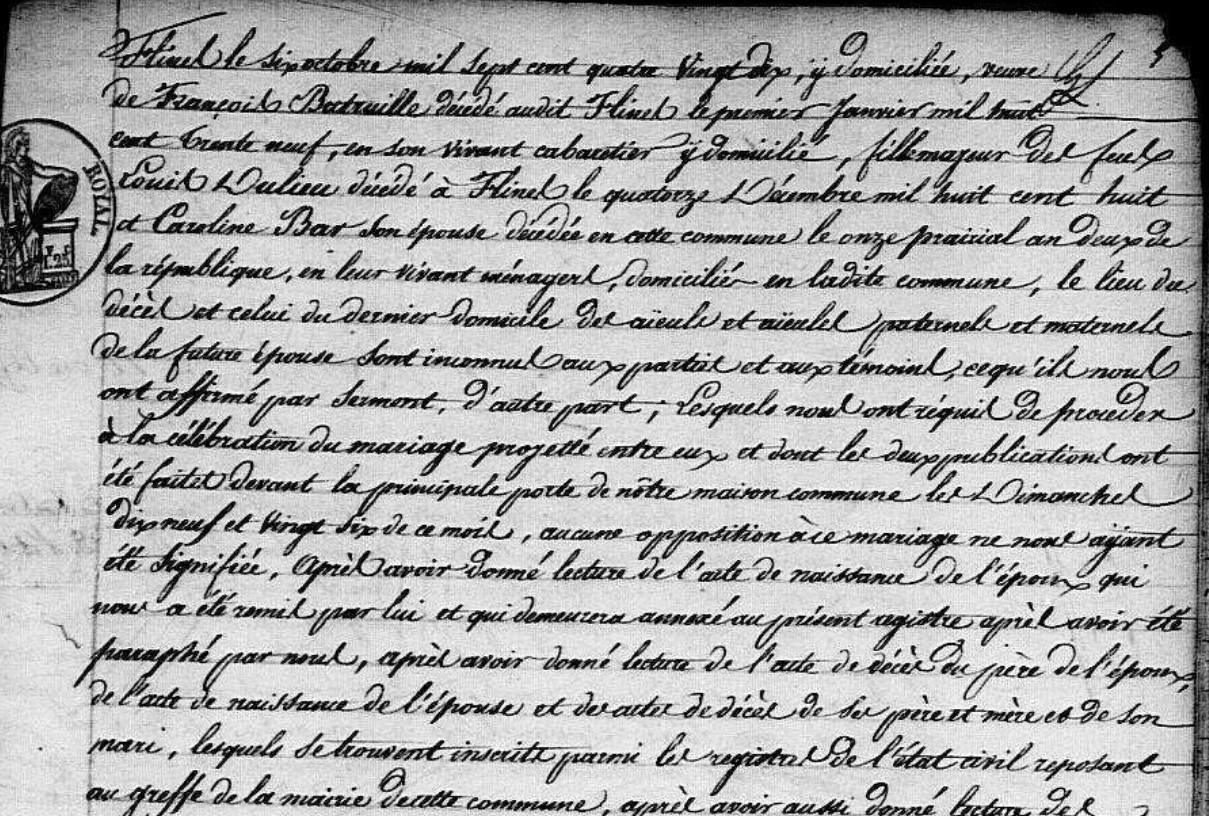 Flines le six octobre mil sept cent quatre vingt dix, ÿ domiciliée, veuve
de François Batrville décédé audit Flines le premier Janvier mil huit
cent trente neuf, en son vivant cabaretier ÿ domicilié, fille majeur des feux
Louis Dulieu décédé à Flines le quatorze Décembre mil huit cent huit
et Caroline Bar son épouse décédée en cette commune le onze prairial an deux de
la république, en leur vivant ménagers, domiciliés en ladite commune, le lieu du
décès et celui du dernier domicile des aïeuls et aïeules paternels et maternels
de la future épouse sont inconnus aux parties et aux témoins, ce qu'ils nous
ont affirmé par serment, d'autre part ; Lesquels nous ont réquis de procéder
à la célébration du mariage projetté entre eux et dont les deux publications ont
été faites devant la principale porte de nôtre maison commune les Dimanches
dix neuf et vingt six de ce mois, aucune opposition à ce mariage ne nous aÿant
été signifiée, Après avoir donné lecture de l'acte de naissance de l'époux qui
nous a été remis par lui et qui demeurera annexé au présent registre après avoir été
paraphé par nous, après avoir donné lecture de l'acte de décès du père de l'époux,
de l'acte de naissance de l'épouse et des actes de décès de ses père et mère et de son
mari, lesquels se trouvent inscrits parmi les registres de l'état civil reposant
au greffe de la mairie de cette commune, après avoir aussi donné lecture des
ROYAL